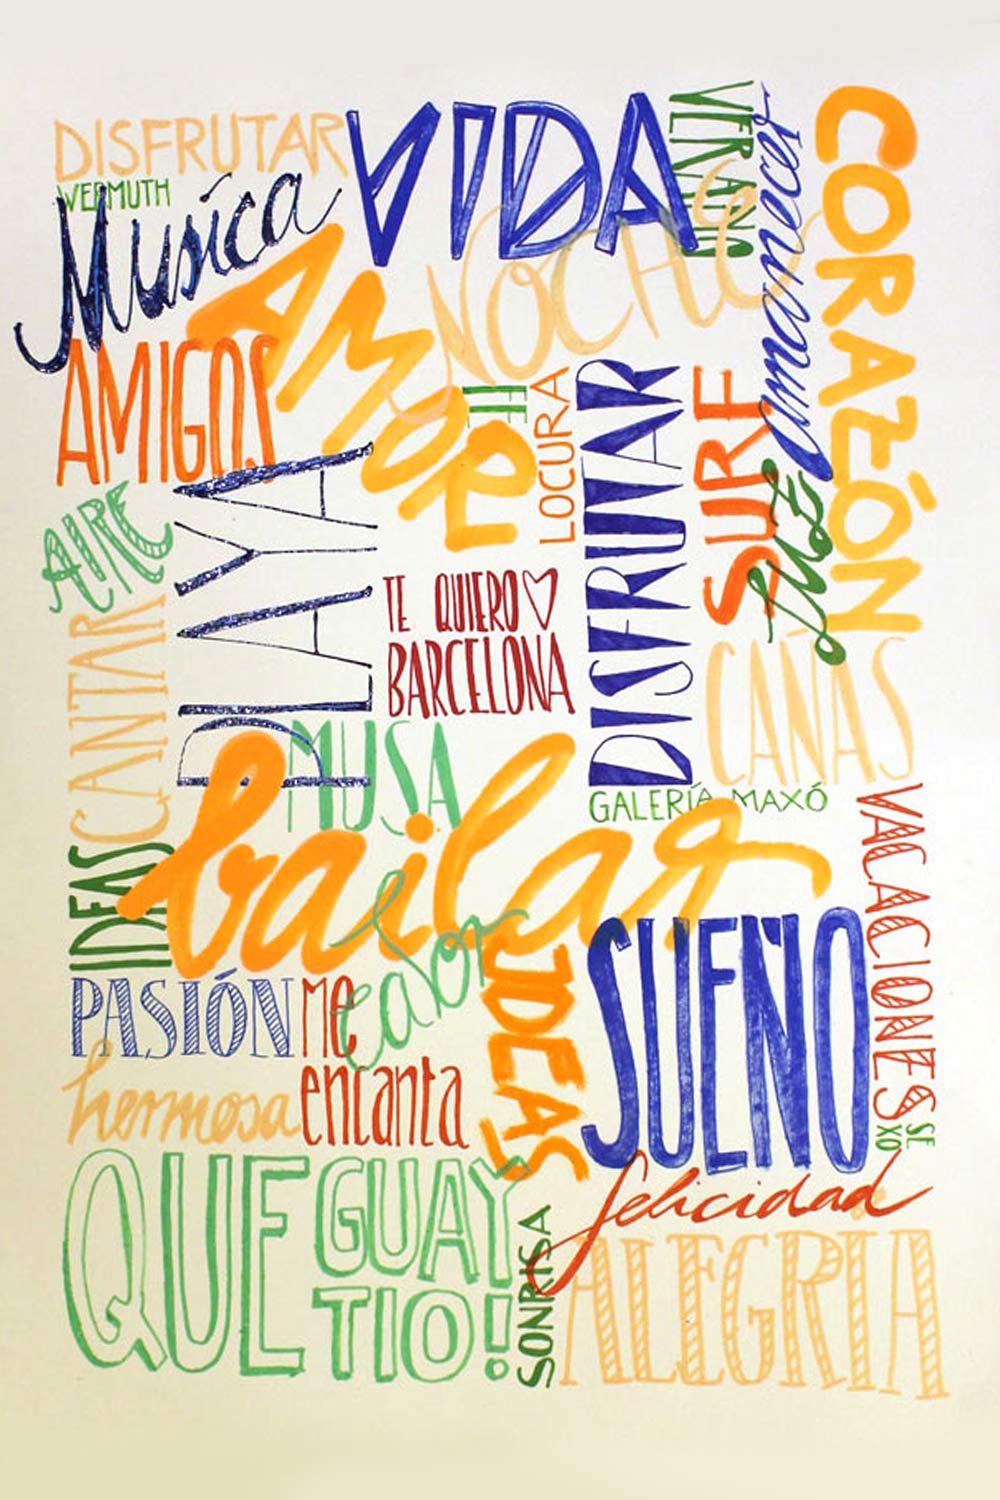 DISFRUTAR
VERMUTH
Musica
VIDA
VERANO
amaneces
CORAZÓN
AMOR
NOCHE
AMIGOS
TE
LOCURA
DISFRUTAR
SURF
LUZ
AIRE
PLAYA
CANTAR
TE QUIERO
BARCELONA
CAÑAS
MUSA
GALERÍA MAXÓ
bailar
IDEAS
calor
VACACIONES
SE
XO
PASIÓN
ME
encanta
IDEAS
SUEÑO
hermosa
QUE
GUAY
TIO!
SONRISA
felicidad
ALEGRÍA